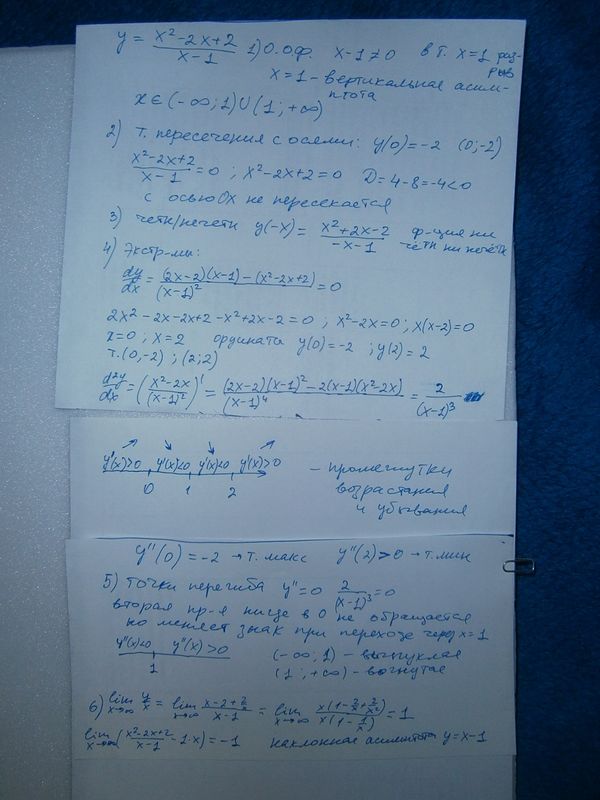 y = (x²-2x+2)/(x-1) 1) О.оф. x-1≠0 в т. x=1 раз-
рыв
x=1 - вертикальная асим-
птота
x∈(-∞;1)∪(1;+∞)
2) т. пересечения с осями: y(0)=-2 (0;-2)
(x²-2x+2)/(x-1)=0 ; x²-2x+2=0 D=4-8=-4<0
с осью Ox не пересекается
3) четн/нечетн y(-x)= (x²+2x-2)/(-x-1) ф-ция ни
четн ни нечетн
4) Экстр-мы:
dy/dx = ((2x-2)(x-1)-(x²-2x+2))/(x-1)² = 0
2x²-2x-2x+2-x²+2x-2=0 ; x²-2x=0 ; x(x-2)=0
x=0 ; x=2 ордината y(0)=-2 ; y(2)=2
т.(0,-2) ; (2;2)
d²y/dx = ((x²-2x)/(x-1)²)' = ((2x-2)(x-1)²-2(x-1)(x²-2x))/(x-1)⁴ = 2/(x-1)³
↗ ↘ ↘ ↗
y'(x)>0 y'(x)<0 y'(x)<0 y'(x)>0 - промежутки
0 1 2 возрастания
и убывания
y''(0)=-2 → т. макс y''(2)>0 → т. мин
5) Точки перегиба y''=0 2/(x-1)³=0
вторая пр-я нигде в 0 не обращается
но меняет знак при переходе через x=1
y''(x)<0 y''(x)>0 (-∞;1) - выпуклая
1 (1;+∞) - вогнутая
6) lim x→∞ y/x = lim x→∞ (x-2+2/x)/(x-1) = lim x→∞ x(1-2/x+2/x²)/x(1-1/x) = 1
lim x→∞ ((x²-2x+2)/(x-1) - 1·x) = -1 наклонная асимптота y=x-1